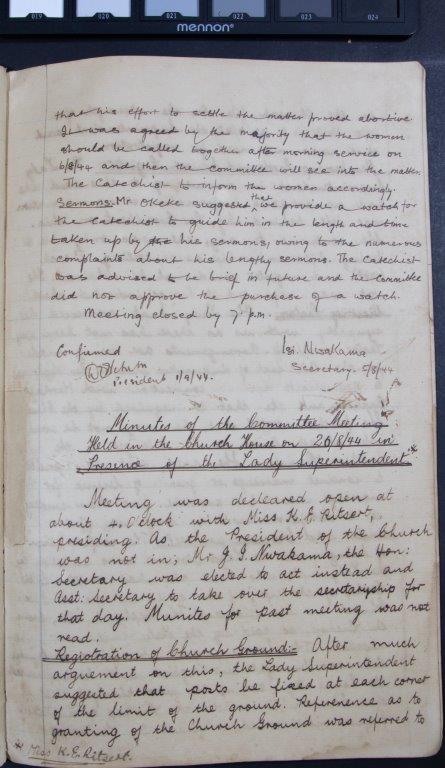 019 020 021 022 023 024
mennon
that his effort to settle the matter proved abortive.
It was agreed by the majority that the women
should be called together after morning service on
6/8/44 and then the Committee will see into the matter.
The Catechist to inform the women accordingly.
Sermons: Mr Okeke suggested that we provide a watch for
the Catechist to guide him in the length and time
taken up by the his sermons, owing to the numerous
complaints about his lengthy sermons. The Catechist
was advised to be brief in future and the Committee
did not approve the purchase of a watch.
Meeting closed by 7 p.m.
Confirmed
President 1/9/44.
Nwakama
Secretary 5/8/44
Minutes of the Committee Meeting
Held in the Church House on 20/8/44 in
Presence of the Lady Superintendent.*
Meeting was decleared open at
about 4. O'Clock with Miss K. E. Ritsert,
presiding. As the President of the Church
was not in; Mr J. I. Nwakama, the Hon:
Secretary was elected to act instead and
Asst. Secretary to take over the secretaryship for
that day. Munites for past meeting was not
read.
Registration of Church Ground:- After much
arguement on this, the Lady Superintendent
suggested that posts be fixed at each corner
of the limit of the ground. Reperence as to
granting of the Church Ground was referred to
* Miss K. E. Ritsert.